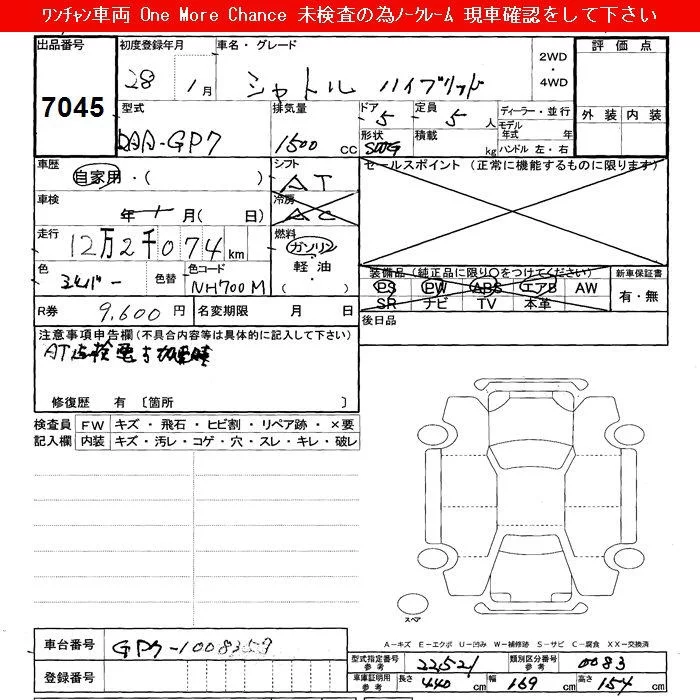 ワンチャン車両 One More Chance 未検査の為ノークレーム 現車確認をして下さい
出品番号 初度登録年月 車名・グレード 2WD・4WD 評価点
7045 28 1月 シャトル ハイブリッド
外装 内装
型式 排気量 ドア 定員 ディーラー・並行
DAA-GP7 1500 CC 5 5人 モデル年式 年
形状 積載 kg ハンドル 左・右
車歴 シフト セールスポイント (正常に機能するものに限ります)
自家用・( ) AT
車検 冷房
年 月( 日) AC
走行 燃料
12万2千074km ガソリン
軽油
・( )
色 色替 色コード 装備品(純正品に限り○をつけてください) 新車保証書
シルバー NH700M PS PW ABS エアB AW 有・無
SR ナビ TV 本革
R券 9,600円 名変期限 月 日 後日品
注意事項申告欄(不具合内容等は具体的に記入して下さい)
AT
修復歴 有 〔箇所 〕
検査員 FW キズ・飛石・ヒビ割・リペア跡・×要
記入欄 内装 キズ・汚レ・コゲ・穴・スレ・キレ・破レ
スペア
A-キズ E-エクボ U-凹み W-補修跡 S-サビ C-腐食 XX-交換済
車台番号 GP7-1008353
型式指定番号参考 22521 類別区分番号参考 0083
登録番号
車庫証明用参考 長さ 440cm 幅 169cm 高さ 154cm